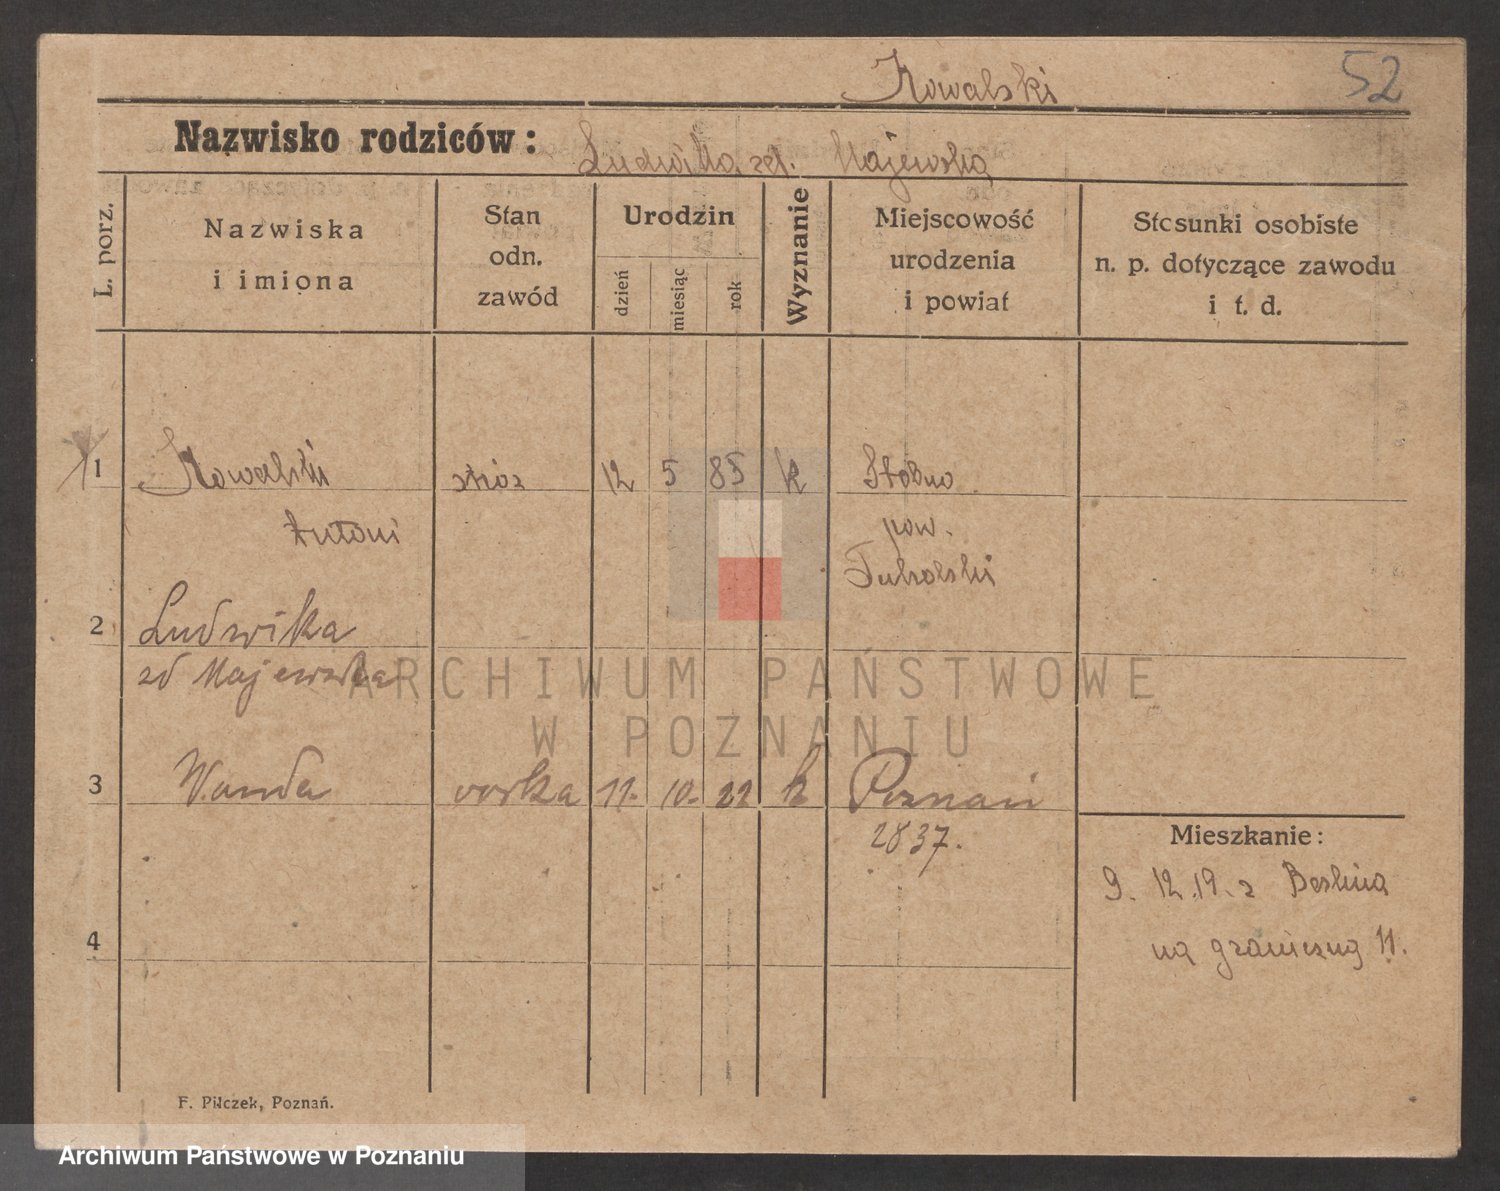 Kowalski
52
Nazwisko rodziców:
Ludwika zd. Majewska
L. porz.
Nazwiska
i imiona
Stan
odn.
zawód
Urodzin
dzień
miesiąc
rok
Wyznanie
Miejscowość
urodzenia
i powiat
Stosunki osobiste
n. p. dotyczące zawodu
i t. d.
1 Kowalski stróż 12 5 85 k Stobno
Antoni pow.
Tucholski
2 Ludwika
zd Majewska
3 Wanda corka 11. 10. 22 k Poznań
2837.
Mieszkanie:
9. 12.19. z Berlina
na graniczną 11.
4
F. Pilczek, Poznań.
ARCHIWUM PAŃSTWOWE
W POZNANIU
Archiwum Państwowe w Poznaniu